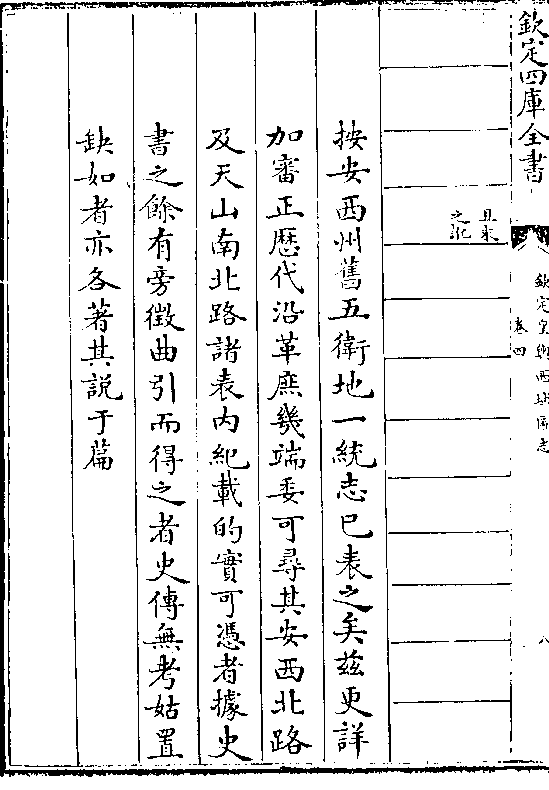 欽定四庫全書
欽定皇輿西域圖志
卷四
八
且末
之記
按安西州舊五衛地一統志已表之矣兹更詳
加審正歴代沿革庶幾端委可尋其安西北路
及天山南北路諸表内紀載的實可憑者據史
書之餘有旁徴曲引而得之者史傳無考姑置
缺如者亦各著其説于篇